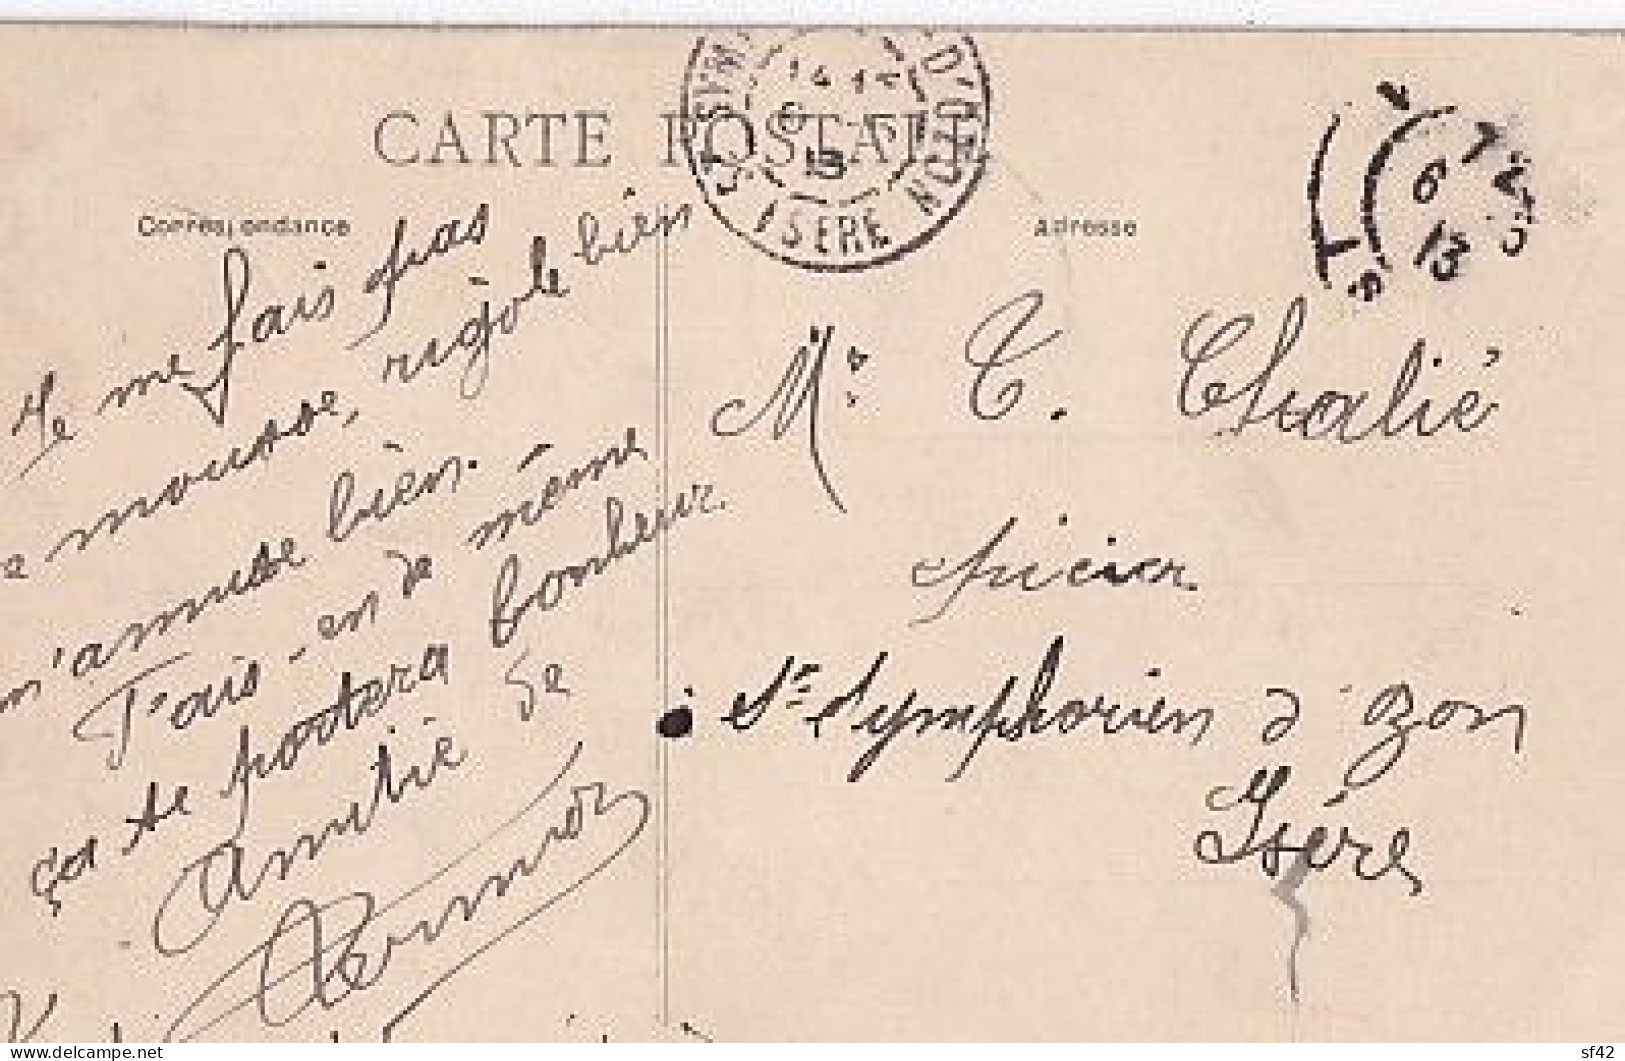 CARTE POSTALE
Correspondance
Adresse
D'OZON
ISERE
6
13
Je me fais pas
mousse, rigole bien
m'amuse bien.
Fais-en de même
ça te portera bonheur
Amitié de
Mr. C. Chalié
épicier
St Symphorien d'Ozon
Isère
sf42